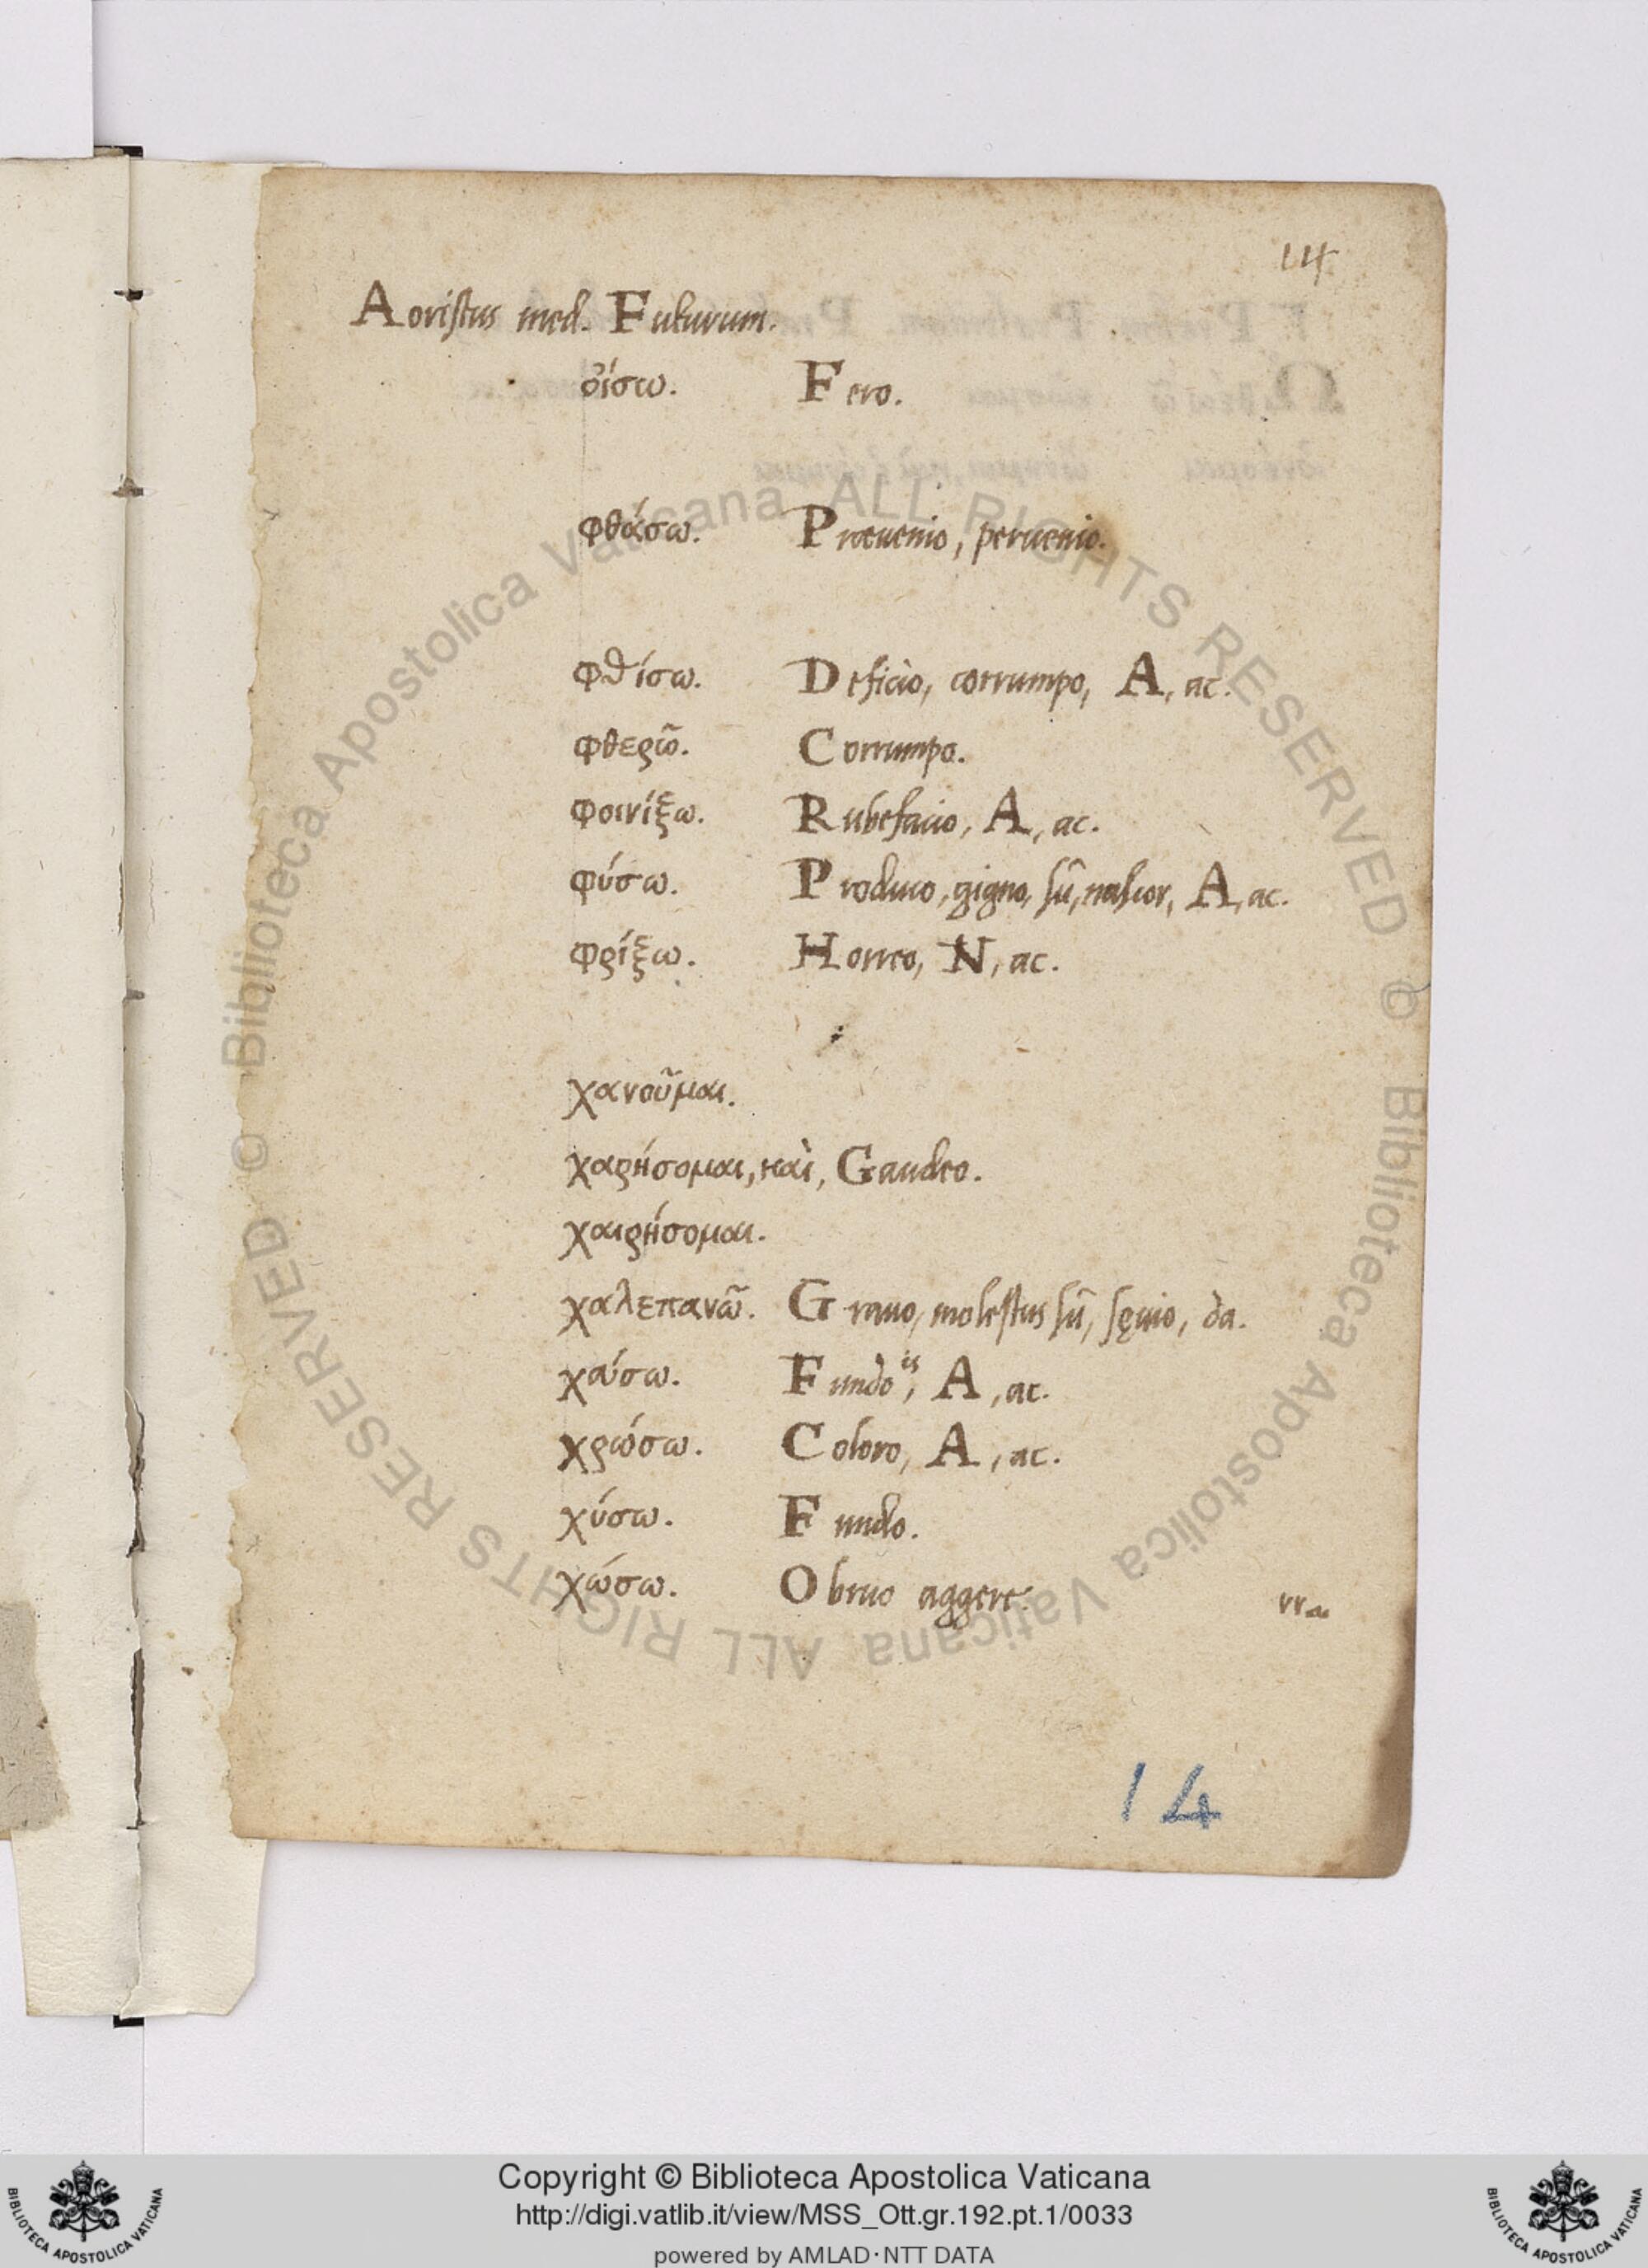 14
Aoristus med. Futurum.
οἴσω. Fero.
φθάσω. Præuenio, peruenio.
φθίσω. Deficio, corrumpo, A, ac.
φθερῶ. Corrumpo.
φοινίξω. Rubefacio, A, ac.
φύσω. Produco, gigno, sũ, nascor, A, ac.
φρίξω. Horreo, N, ac.
χανοῦμαι.
χαρήσομαι, καὶ, Gaudeo.
χαιρήσομαι.
χαλεπανῶ. Grauo, molestus sũ, sęuio, da.
χαύσω. Fundo is, A, ac.
χρώσω. Coloro, A, ac.
χύσω. Fundo.
χώσω. Obruo aggere.
14
© Biblioteca Apostolica Vaticana ALL RIGHTS RESERVED © Biblioteca Apostolica Vaticana ALL RIGHTS RESERVED
BIBLIOTECA APOSTOLICA VATICANA
Copyright © Biblioteca Apostolica Vaticana
http://digi.vatlib.it/view/MSS_Ott.gr.192.pt.1/0033
powered by AMLAD·NTT DATA
BIBLIOTECA APOSTOLICA VATICANA